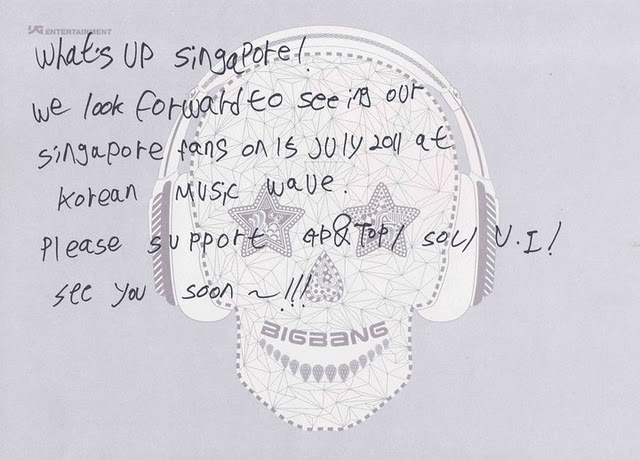 YG ENTERTAINMENT
What's UP Singapore!
We look forward to seeing our
singapore fans on 15 JULY 2011 at
Korean MUSIC wave.
Please support GD&TOP/ SOL/ V.I!
see you soon ~!!!
BIGBANG